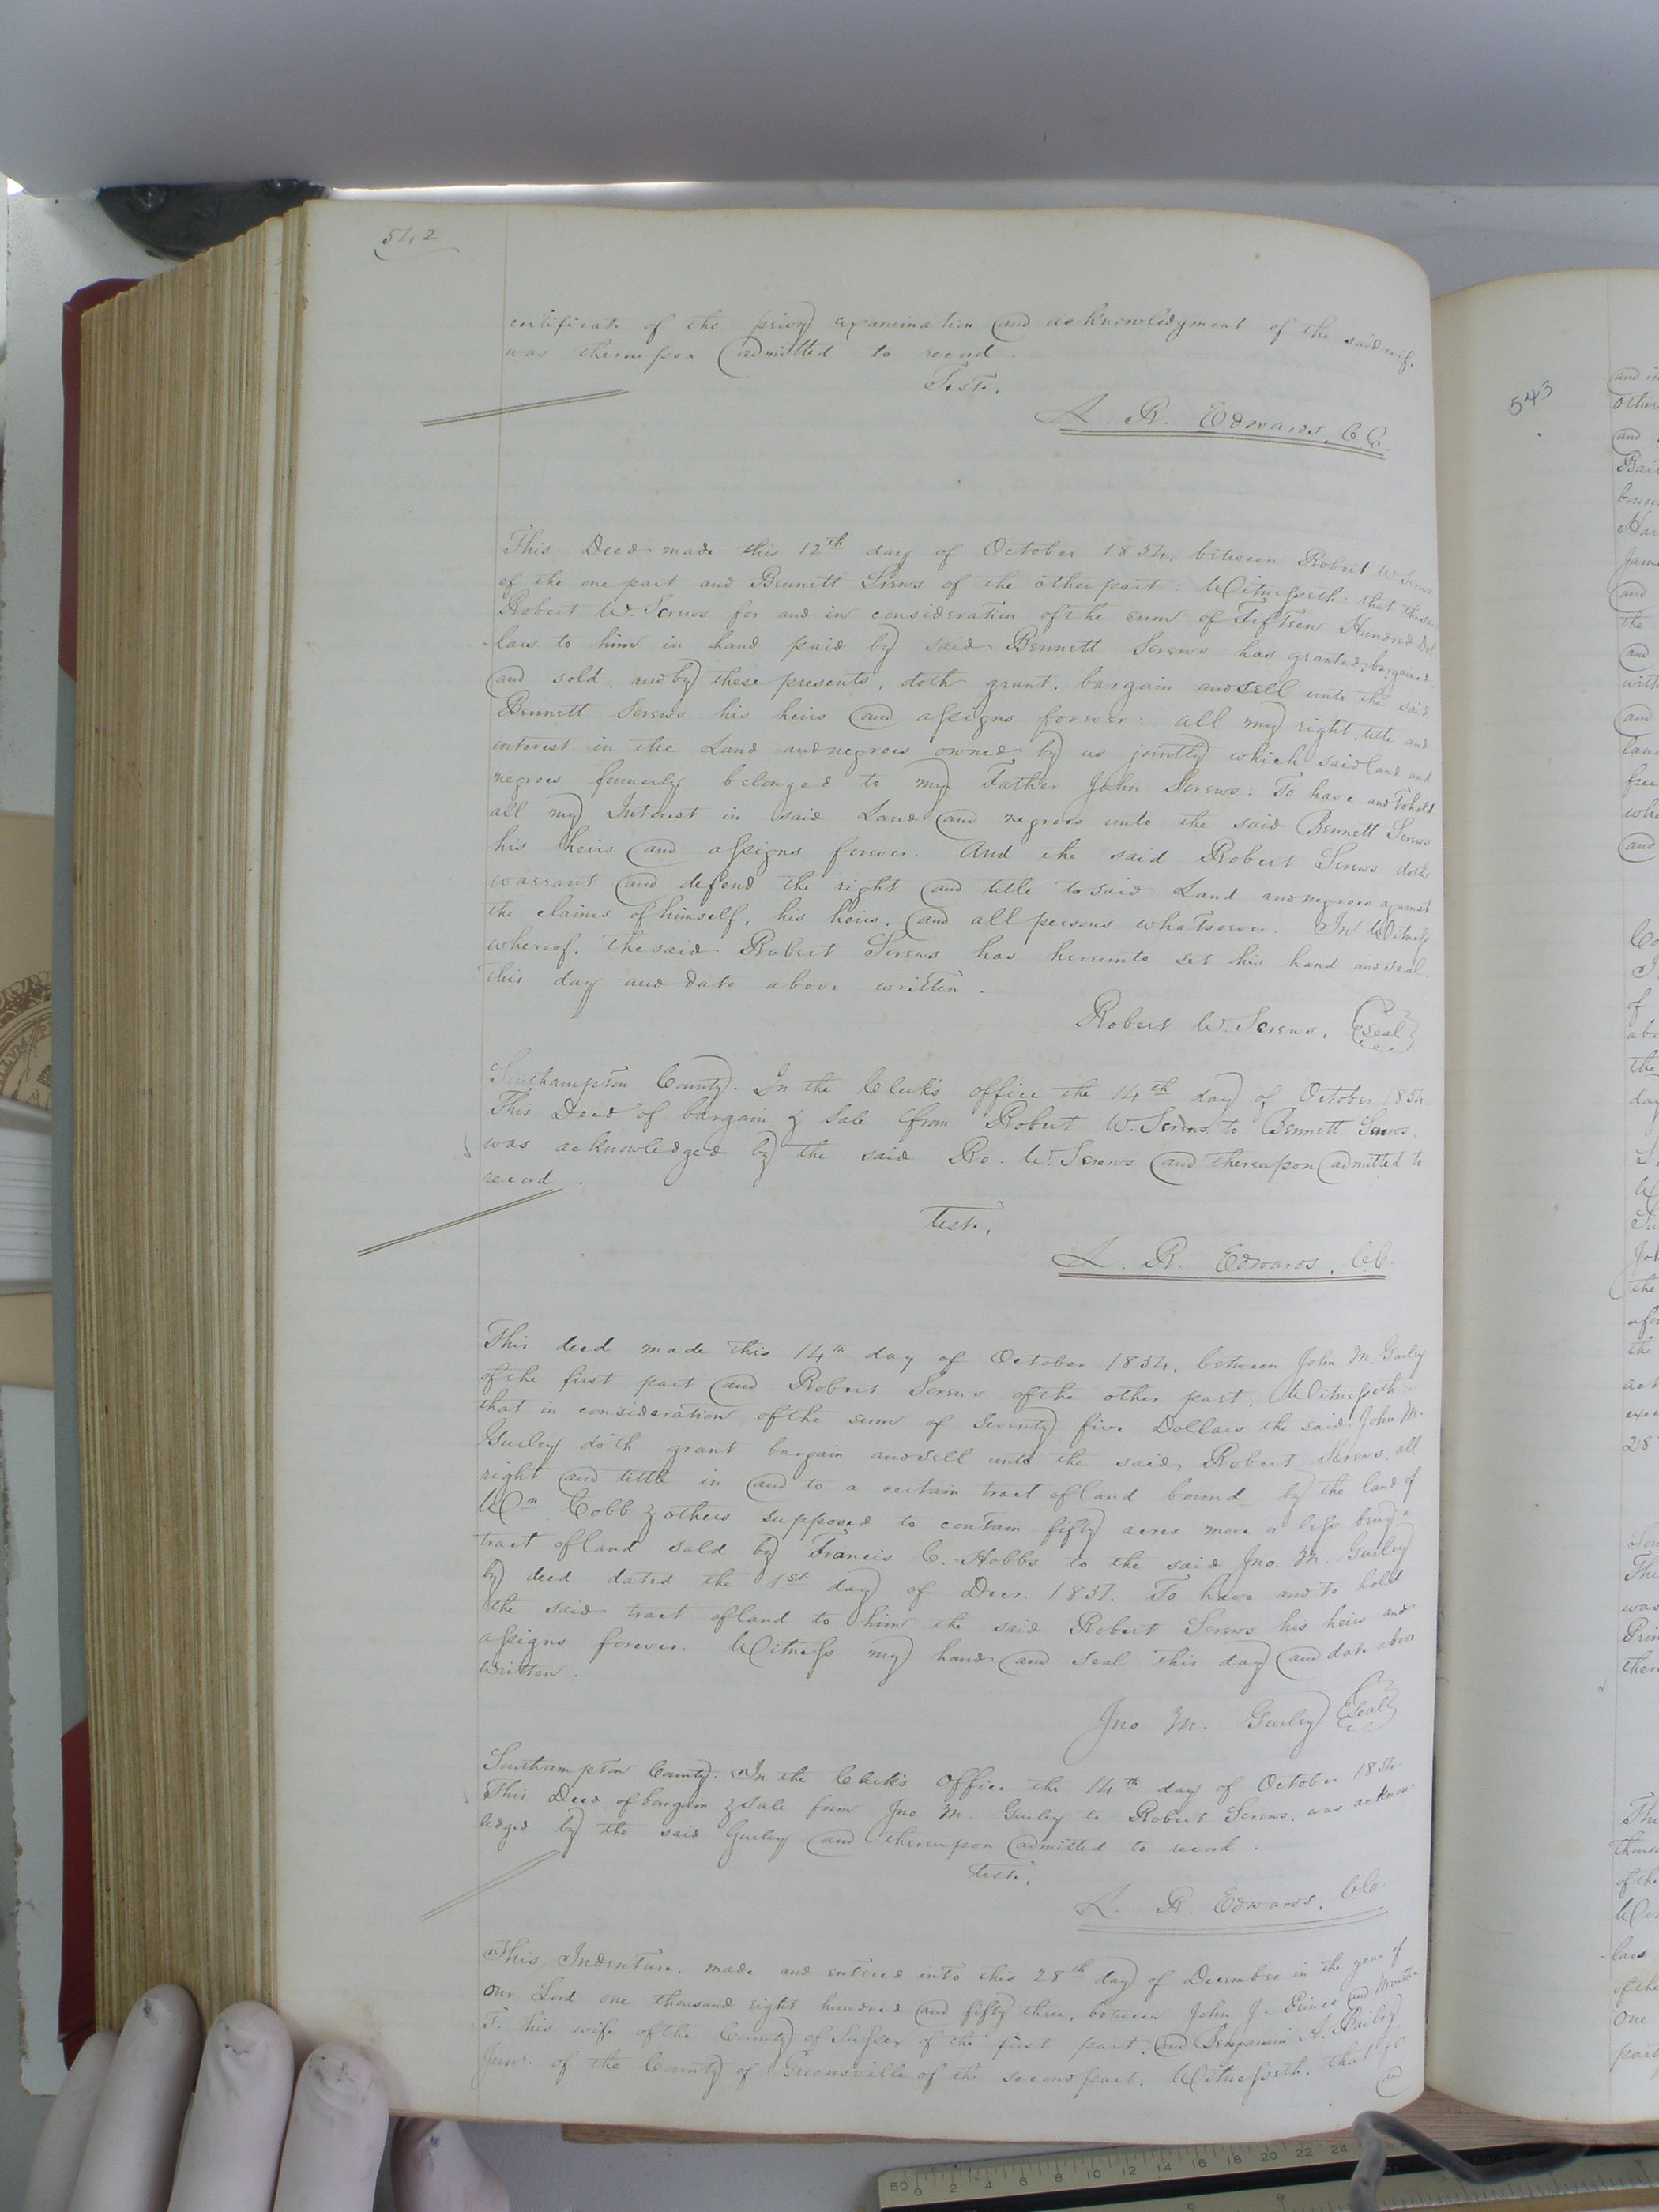 542
certificate of the privy examination and acknowledgment of the said wife
was thereupon admitted to record.
Teste,
L. R. Edwards, C.C.
This Deed made this 12th day of October 1854, between Robert W. Screws
of the one part and Bennett Screws of the other part: Witnesseth: that the said
Robert W. Screws for and in consideration of the sum of Fifteen Hundred Dol-
-lars to him in hand paid by said Bennett Screws has granted, bargained
and sold, and by these presents, doth grant, bargain and sell unto the said
Bennett Screws his heirs and assigns forever: all my right, title and
interest in the Land and negroes owned by us jointly which said land and
negroes formerly belonged to my Father John Screws: To have and to hold
all my Interest in said Land and negroes unto the said Bennett Screws
his heirs and assigns forever. And the said Robert Screws doth
warrant and defend the right and title to said Land and negroes against
the claims of himself, his heirs, and all persons whatsoever. In Witness
whereof, the said Robert Screws has hereunto set his hand and seal.
this day and date above written.
Robert W. Screws, Seal
Southampton County. In the Clerk's office the 14th day of October 1854.
This Deed of bargain & sale from Robert W. Screws to Bennett Screws.
was acknowledged by the said Ro. W. Screws and thereupon admitted to
record.
Teste,
L. R. Edwards, C.C.
This deed made this 14th day of October 1854, between John M. Gurley
of the first part and Robert Screws of the other part, Witnesseth:
that in consideration of the sum of Seventy five Dollars the said John M.
Gurley doth grant bargain and sell unto the said Robert Screws, all
right and title in and to a certain tract of land bound by the land of
Wm Cobb & others supposed to contain fifty acres more or less being a
tract of land sold by Francis C. Hobbs to the said Jno. M. Gurley
by deed dated the 1st day of Decr. 1837. To have and to hold
the said tract of land to him the said Robert Screws his heirs and
assigns forever. Witness my hand and seal this day and date above
written.
Jno. M. Gurley Seal
Southampton County. In the Clerk's Office the 14th day of October 1854.
This Deed of bargain & sale from Jno M. Gurley to Robert Screws, was acknow
ledged by the said Gurley and thereupon admitted to record.
Teste,
L. R. Edwards, C.C.
This Indenture, made and entered into this 28th day of December in the year of
our Lord one thousand eight hundred and fifty three, between John J. Prince and
T. his wife of the County of Sussex of the first part, and Benjamin A. Bailey
Junr. of the County of Greensville of the second part. Witnesseth, that
and
543